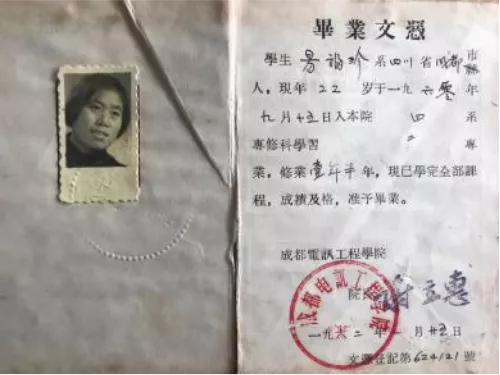 畢業文憑
學生 易 珍 系四川省成都市縣
人，現年22歲于一九六零年
九月十五日入本院 四 系
專修科學習 專
業，修業壹年半年，現已學完全部課
程，成績及格，准予畢業。
成都電訊工程學院
院長
成都电訊工程学院
一九六二年一月廿五日
文憑登記第624121號